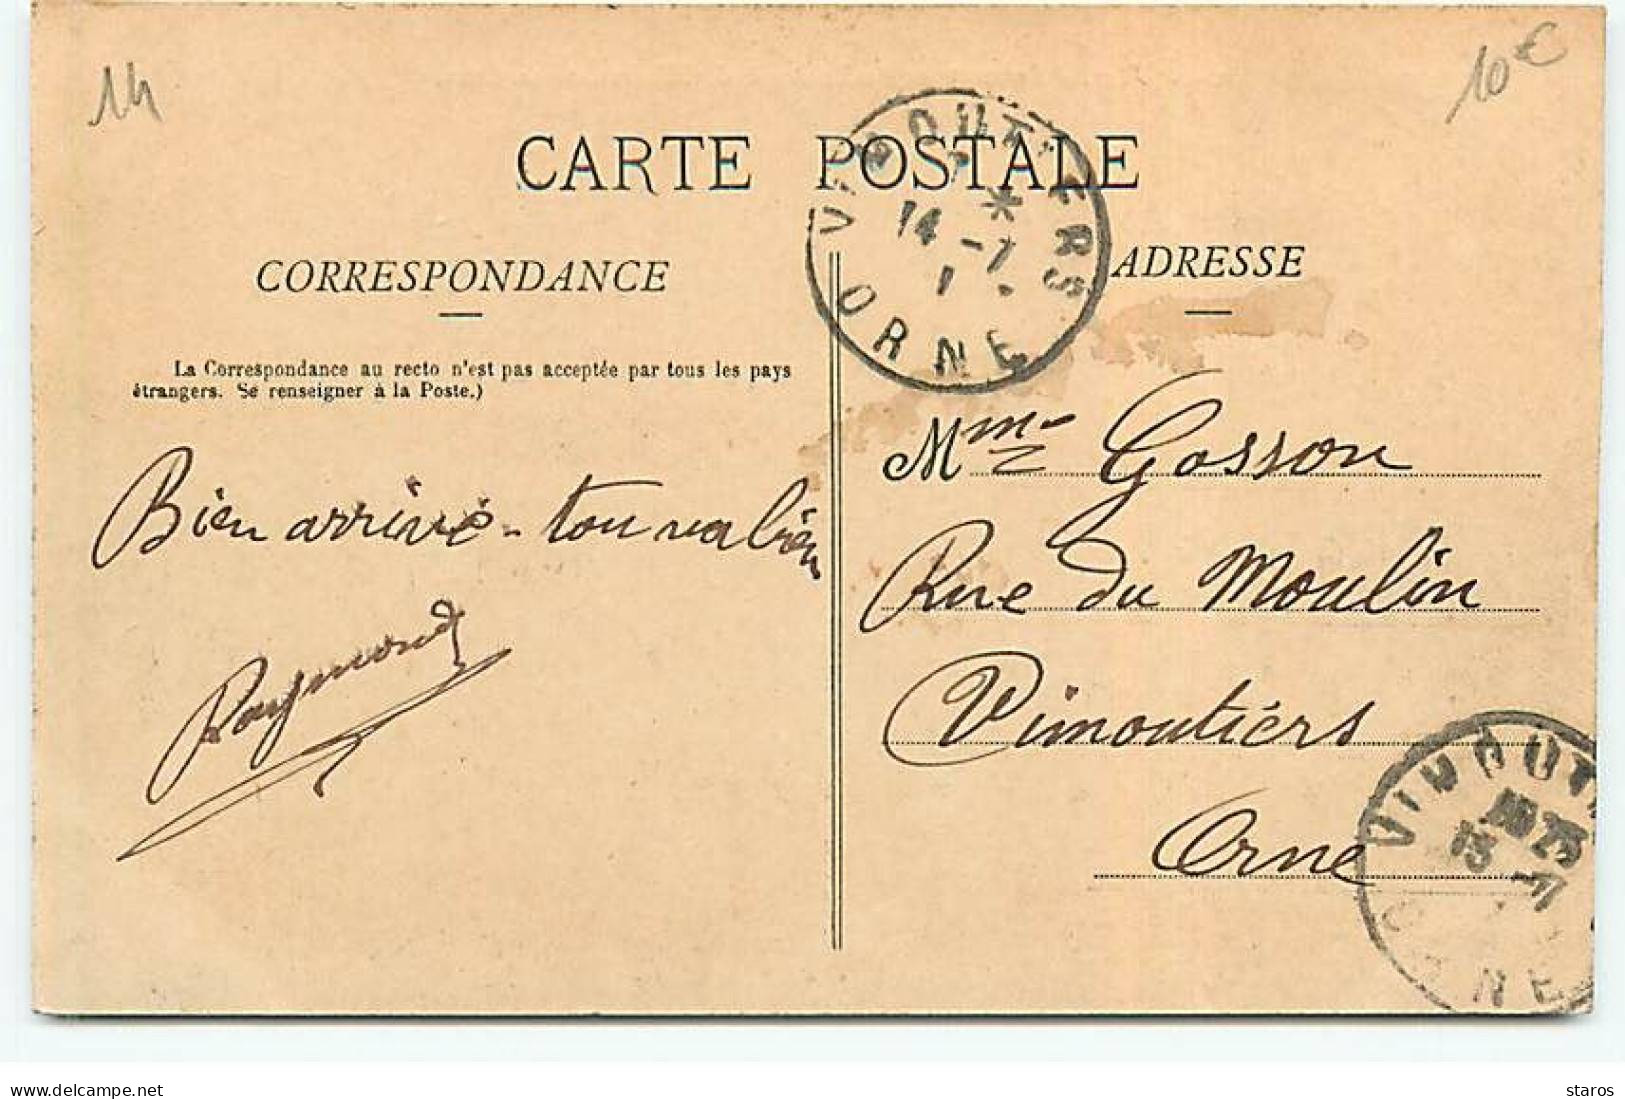 14
10€
CARTE POSTALE
VIMOUTIERS
14 -7
ORNE
CORRESPONDANCE
ADRESSE
La Correspondance au recto n'est pas acceptée par tous les pays
étrangers. Se renseigner à la Poste.)
Bien arrivé - tou va bien
Raymond
Mme Gosson
Rue du Moulin
Vimoutiérs
Orne
VIMOUT
15 -7
ORNE
www.delcampe.net
staros